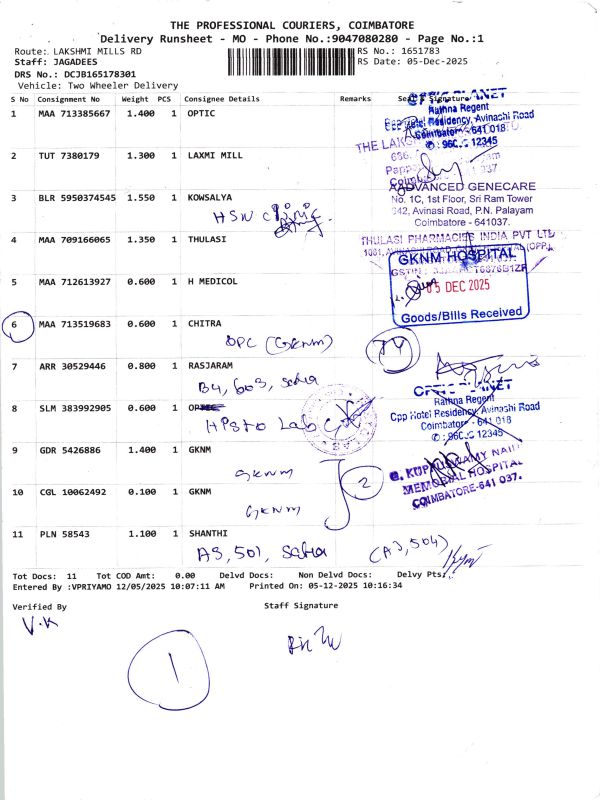 THE PROFESSIONAL COURIERS, COIMBATORE
Delivery Runsheet - MO - Phone No.:9047080280 - Page No.:1
Route: LAKSHMI MILLS RD
RS No.: 1651783
Staff: JAGADEES
RS Date: 05-Dec-2025
DRS No.: DCJB165178301
Vehicle: Two Wheeler Delivery
S No Consignment No Weight PCS Consignee Details Remarks Signature
1 MAA 713385667 1.400 1 OPTIC
OPTIC PLANET
Rathna Regent
Cpp Hotel Residency, Avinashi Road
Coimbatore - 641 018
2 TUT 7380179 1.300 1 LAXMI MILL
3 BLR 5950374545 1.550 1 KOWSALYA
ADVANCED GENECARE
No. 1C, 1st Floor, Sri Ram Tower
342, Avinasi Road, P.N. Palayam
Coimbatore - 641037.
4 MAA 709166065 1.350 1 THULASI
THULASI PHARMACIES INDIA PVT LTD
5 MAA 712613927 0.600 1 H MEDICOL
GKNM HOSPITAL
05 DEC 2025
Goods/Bills Received
6 MAA 713519683 0.600 1 CHITRA
OPC (GKNM)
7 ARR 30529446 0.800 1 RASJARAM
B4, 603,
8 SLM 383992905 0.600 1
Lab
OPTIC PLANET
Rathna Regent
Cpp Hotel Residency, Avinashi Road
Coimbatore - 641 018
9 GDR 5426886 1.400 1 GKNM
GKNM
2
G. KUPPUSWAMY NAIDU
MEMORIAL HOSPITAL
COIMBATORE-641 037.
10 CGL 10062492 0.100 1 GKNM
GKNM
11 PLN 58543 1.100 1 SHANTHI
A5, 501, (A3, 504)
Tot Docs: 11 Tot COD Amt: 0.00 Delvd Docs: Non Delvd Docs: Delvy Pts:
Entered By :VPRIYAMO 12/05/2025 10:07:11 AM Printed On: 05-12-2025 10:16:34
Verified By Staff Signature
V.K
1